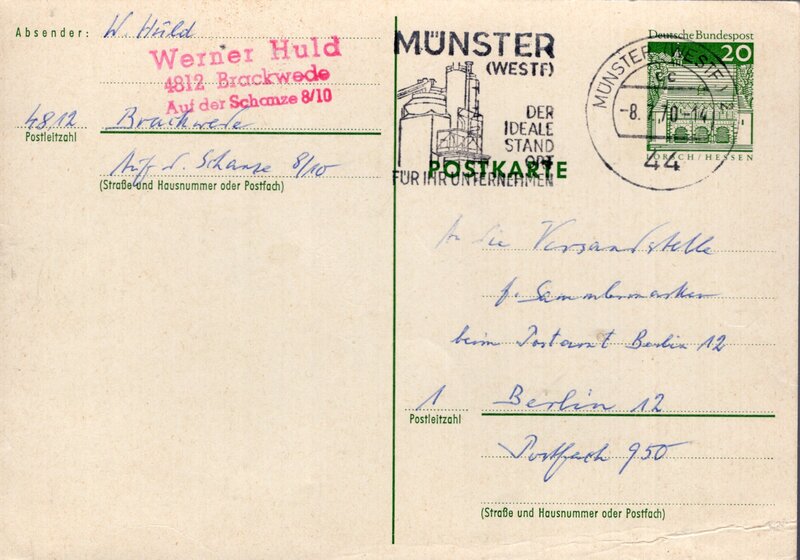 Absender: W. Huld
Werner Huld
4812 Brackwede
Auf der Schanze 8/10
4812 Brackwede
Postleitzahl
Auf d. Schanze 8/10
(Straße und Hausnummer oder Postfach)
MÜNSTER
(WESTF)
DER
IDEALE
STAND
ORT
FÜR IHR UNTERNEHMEN
POSTKARTE
MÜNSTER (WESTF) 2
cc
-8.7.70-14
44
Deutsche Bundespost
20
LORSCH/HESSEN
An die Versandstelle
f. Sammlermarken
beim Postamt Berlin 12
1 Berlin 12
Postleitzahl
Postfach 950
(Straße und Hausnummer oder Postfach)